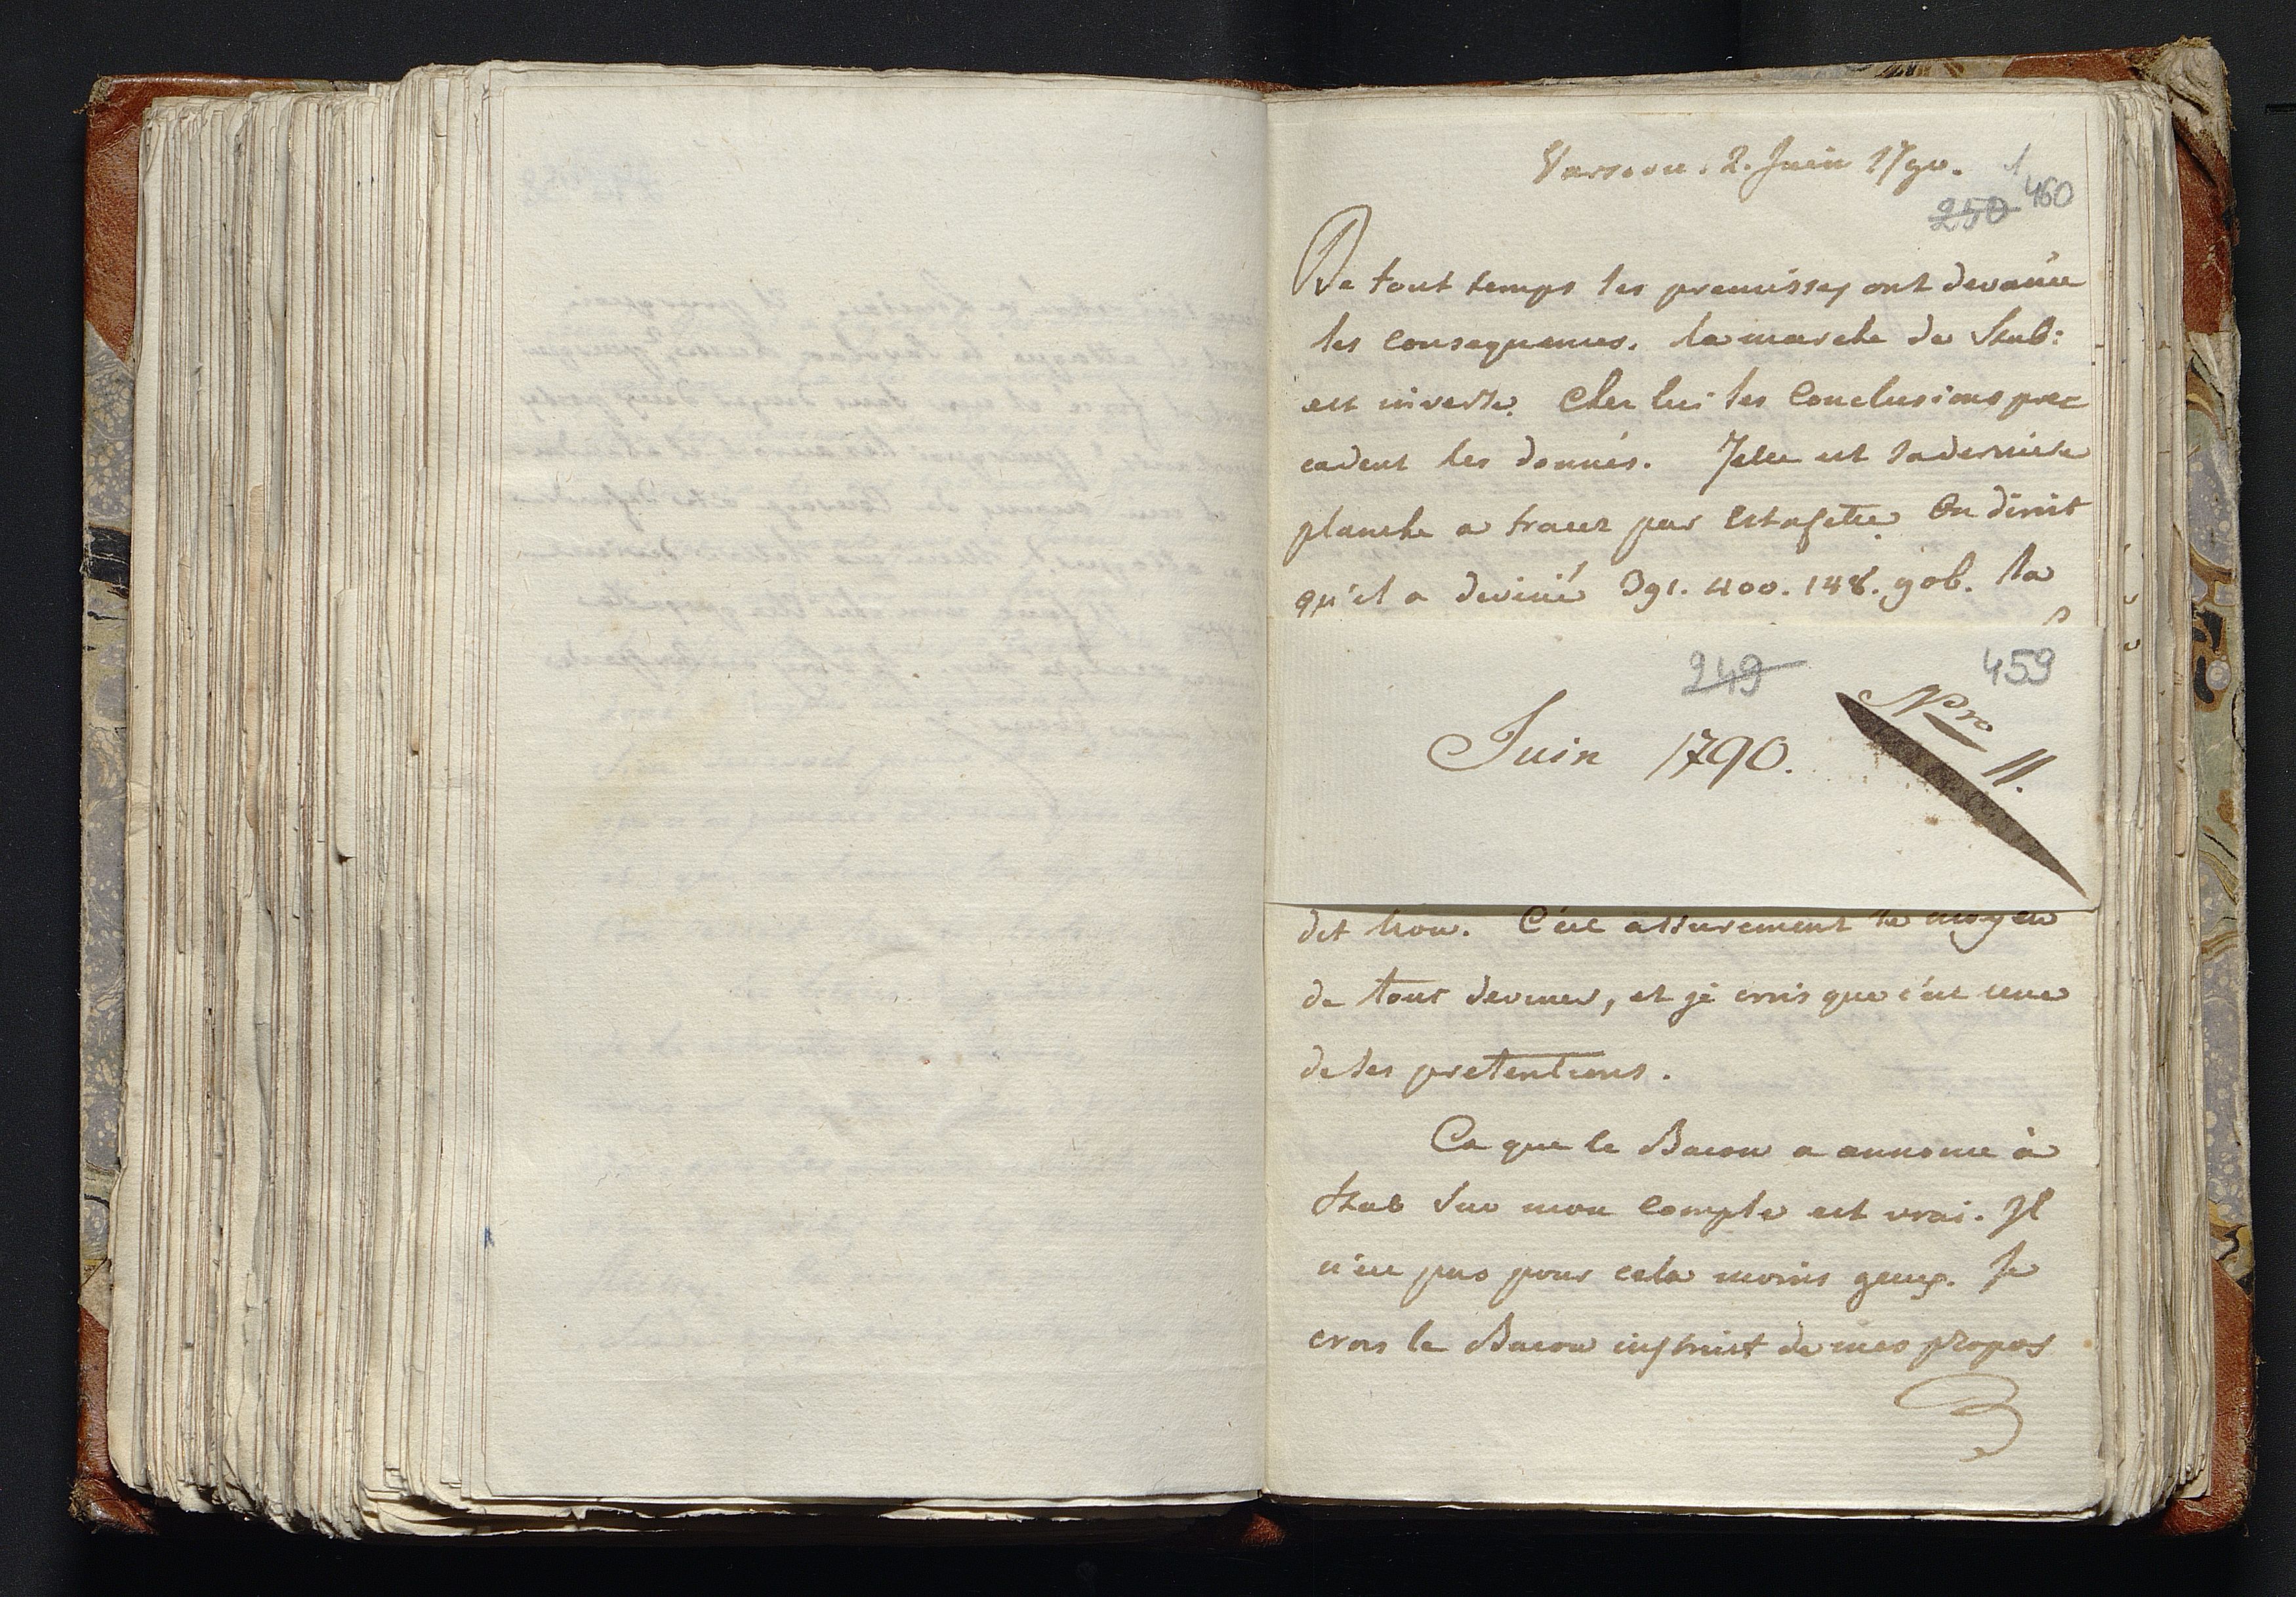 Varsovie. 2. Juin 1790.
1
250 460
De tout temps les premisses ont devancé
les consequences. la marche de Stub:
est inverse. Chez lui les Conclusions prec
cedent les donnés. Telle est sa derniere
planche a tracer par Estafette. On diroit
qu'il a deviné 391. 400. 148. gob. la
249 459
Juin 1790. Nro 11.
dit non. C'est assurement le moyen
de tout deviner, et je crois que c'est une
de ses pretentions.
Ce que le Baron a annoncé à
Stub sur mon compte est vrai. Il
n'en pas pour cela moins geux. Je
crois le Baron instruit de mes propos